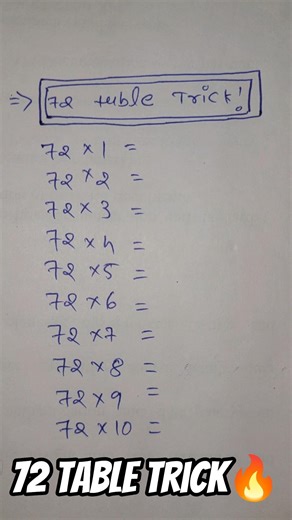 => 72 tuble Trick!
72 × 1 =
72 × 2 =
72 × 3 =
72 × 4 =
72 × 5 =
72 × 6 =
72 × 7 =
72 × 8 =
72 × 9 =
72 × 10 =
72 TABLE TRICK🔥